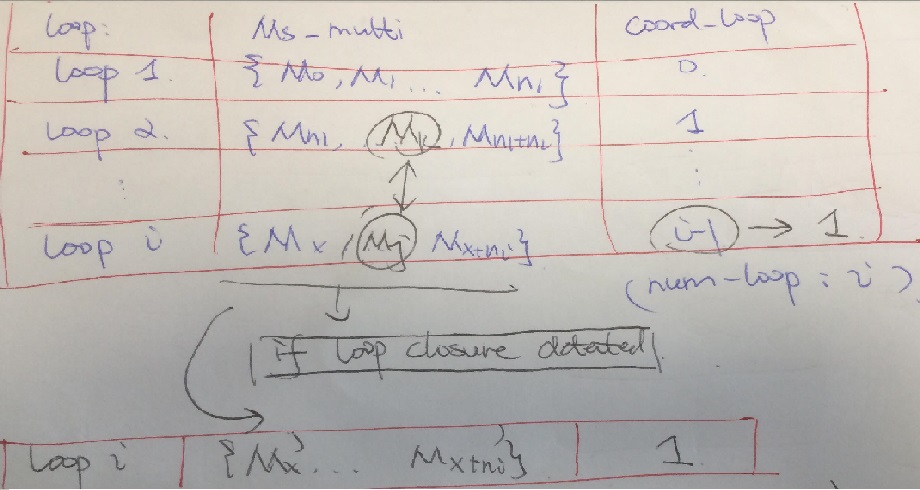 Loop: Ms_multi coord_loop
Loop 1. {M0, M1... Mn1} 0.
Loop 2. {Mn1, Mk, Mn1+n2} 1
: :
Loop i {Mx, Mj Mx+ni} i-1 → 1
(num-loop: i)
if loop closure detated
Loop i {Mx'... Mx+ni'} 1